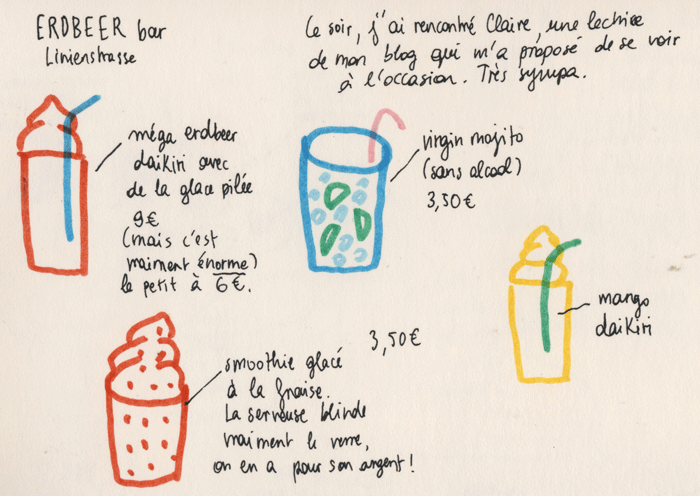 ERDBEER bar
Linienstrasse
Ce soir, j'ai rencontré Claire, une lectrice
de mon blog qui m'a proposé de se voir
à l'occasion. Très sympa.
méga erdbeer
daïkiri avec
de la glace pilée
9€
(mais c'est
vraiment énorme)
le petit à 6€.
virgin mojito
(sans alcool)
3,50€
mango
daïkiri
3,50€
smoothie glacé
à la fraise.
La serveuse blinde
vraiment le verre,
on en a pour son argent!